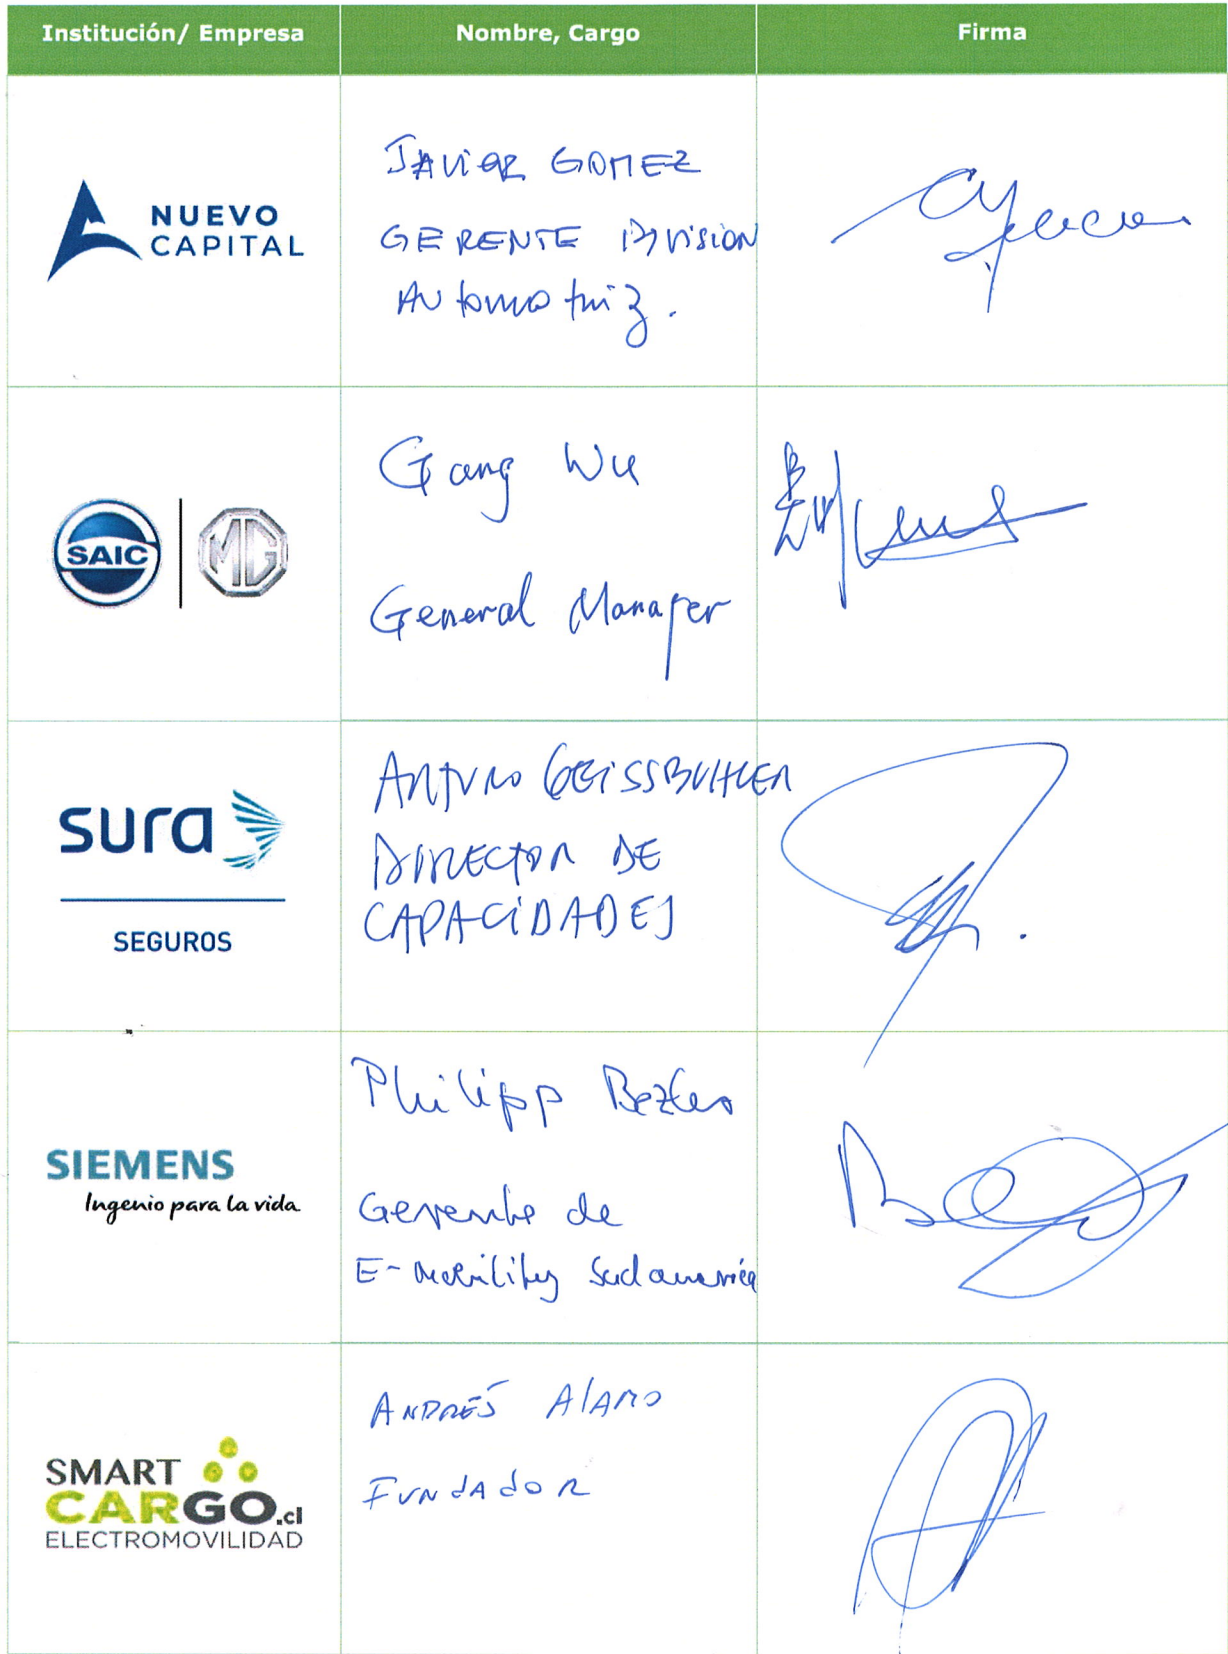 Institución/ Empresa
Nombre, Cargo
Firma
NUEVO
CAPITAL
JAVIER GOMEZ
GERENTE DIVISION
Automotriz.
SAIC
MG
Gang Wu
General Manager
sura
SEGUROS
ARTURO GEISSBUHLER
DIRECTOR DE
CAPACIDADES
SIEMENS
Ingenio para la vida
Philipp
Gerente de
E-mobility Sudamérica
SMART
CARGO.cl
ELECTROMOVILIDAD
ANDRÉS ALAMO
FUNdAdOR